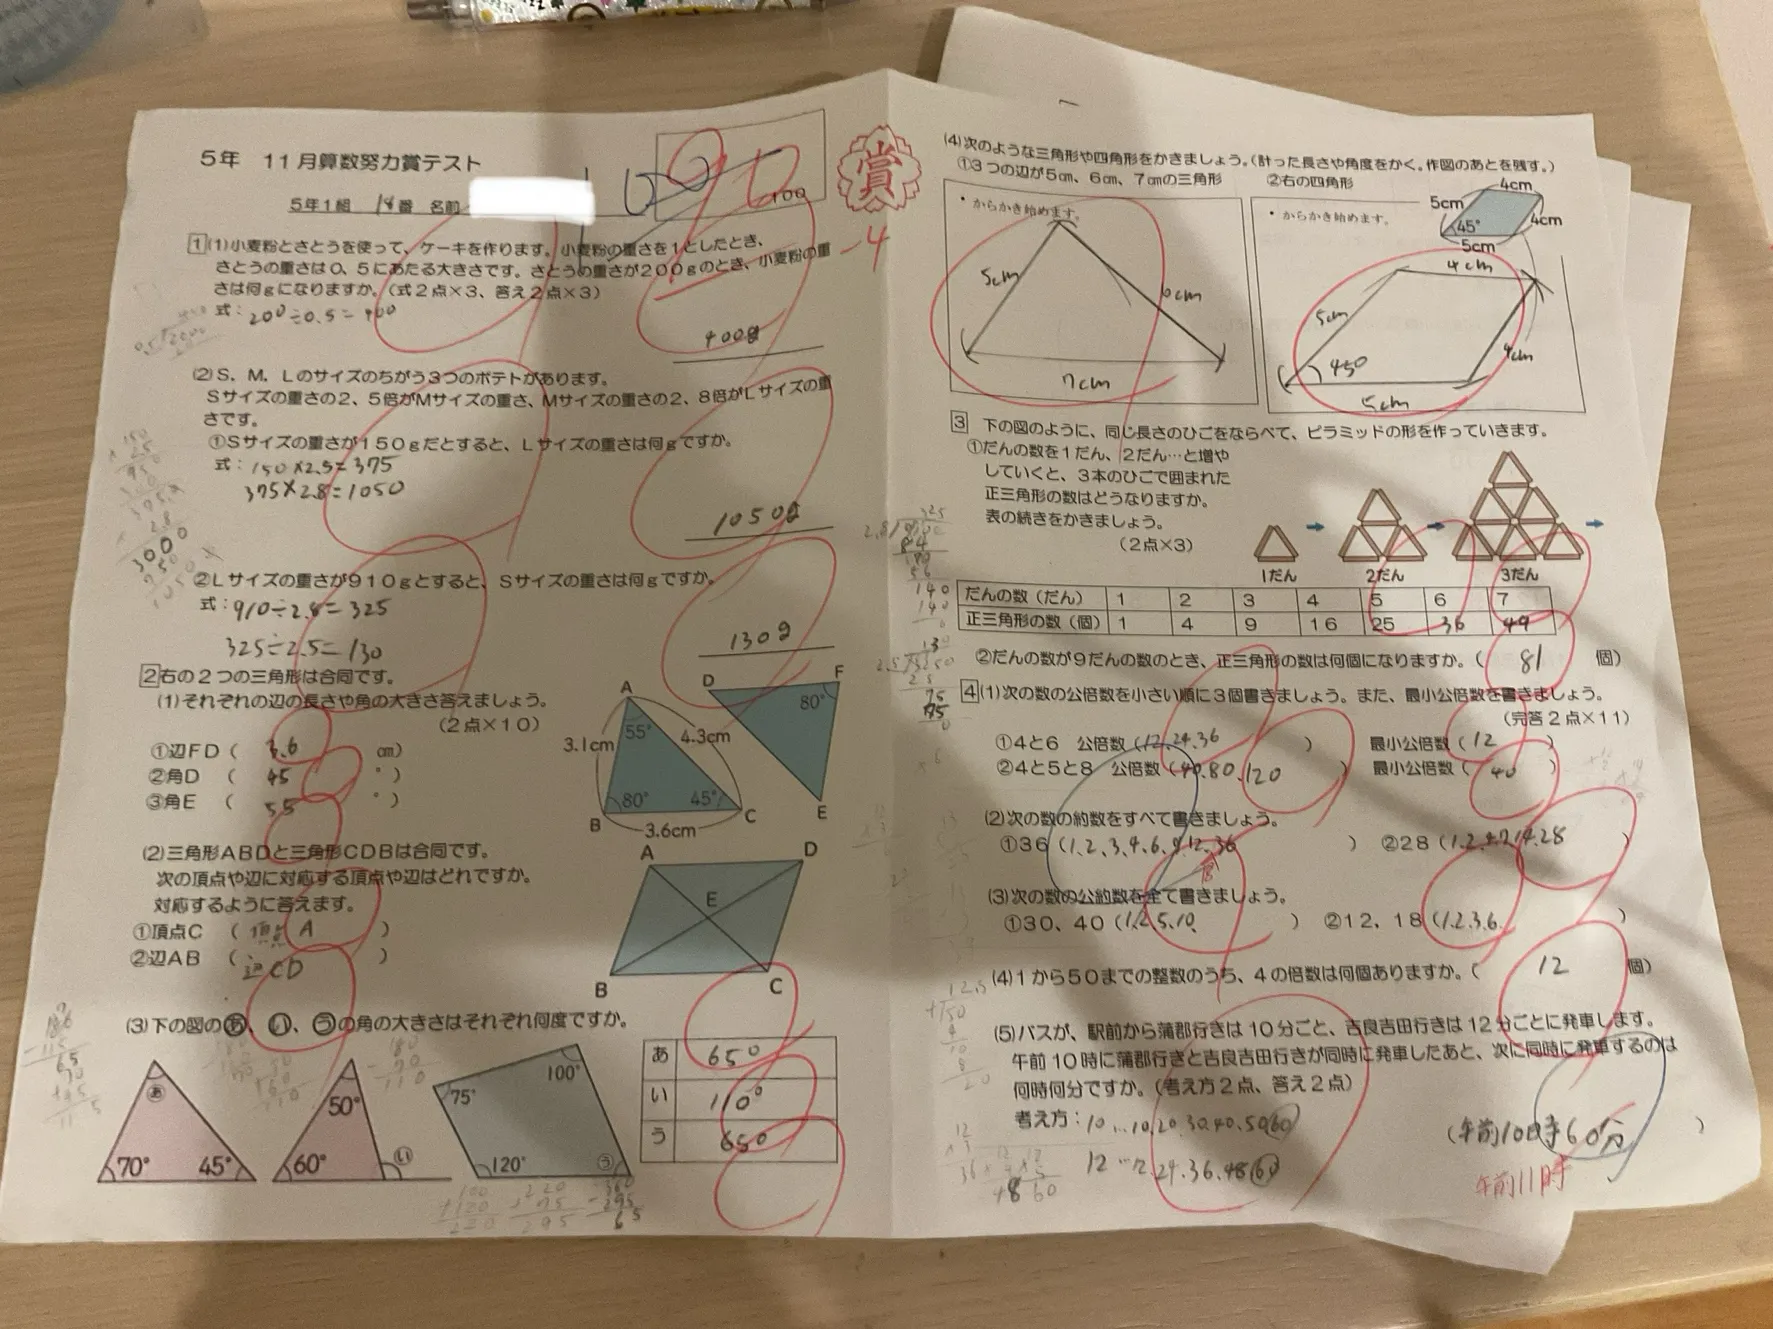 5年 11月算数努力賞テスト
100
賞
-4
5年1組 18番 名前
1 (1)小麦粉とさとうを使って、ケーキを作ります。小麦粉の重さを1としたとき、
さとうの重さは0.5にあたる大きさです。さとうの重さが200gのとき、小麦粉の重
さは何gになりますか。(式2点×3、答え2点×3)
式:200÷0.5=400
400g
(2)S、M、Lのサイズのちがう3つのポテトがあります。
Sサイズの重さの2.5倍がMサイズの重さ、Mサイズの重さの2.8倍がLサイズの重
さです。
①Sサイズの重さが150gだとすると、Lサイズの重さは何gですか。
式:150×2.5=375
375×2.8=1050
1050g
②Lサイズの重さが910gとすると、Sサイズの重さは何gですか。
式:910÷2.8=325
325÷2.5=130
130g
2 右の2つの三角形は合同です。
(1)それぞれの辺の長さや角の大きさ答えましょう。
(2点×10)
①辺FD( 3.6 cm)
②角D ( 45 °)
③角E ( 55 °)
A 55° 3.1cm 4.3cm 80° 45° B 3.6cm C
D F 80° E
(2)三角形ABDと三角形CDBは合同です。
次の頂点や辺に対応する頂点や辺はどれですか。
対応するように答えます。
①頂点C ( 頂点A )
②辺AB ( 辺CD )
A D E B C
(3)下の図のあ、い、うの角の大きさはそれぞれ何度ですか。
あ 70° 45°
50° 60° い
75° 100° 120° う
あ 65°
い 110°
う 65°
(4)次のような三角形や四角形をかきましょう。(計った長さや角度をかく。作図のあとを残す。)
①3つの辺が5cm、6cm、7cmの三角形 ②右の四角形
4cm 5cm 4cm 45° 5cm
・からかき始めます。
5cm 6cm 7cm
・からかき始めます。
4cm 5cm 45° 4cm 5cm
3 下の図のように、同じ長さのひごをならべて、ピラミッドの形を作っていきます。
①だんの数を1だん、2だん…と増や
していくと、3本のひごで囲まれた
正三角形の数はどうなりますか。
表の続きをかきましょう。
(2点×3)
1だん 2だん 3だん
だんの数(だん) 1 2 3 4 5 6 7
正三角形の数(個) 1 4 9 16 25 36 49
②だんの数が9だんの数のとき、正三角形の数は何個になりますか。( 81 個)
4 (1)次の数の公倍数を小さい順に3個書きましょう。また、最小公倍数を書きましょう。
(完答2点×11)
①4と6 公倍数(12.24.36 ) 最小公倍数( 12 )
②4と5と8 公倍数(40.80.120 ) 最小公倍数( 40 )
(2)次の数の約数をすべて書きましょう。
①36(1.2.3.4.6.9.12.36 ) ②28(1.2.4.7.14.28 )
(3)次の数の公約数を全て書きましょう。
①30、40(1.2.5.10. ) ②12、18(1.2.3.6. )
(4)1から50までの整数のうち、4の倍数は何個ありますか。( 12 個)
(5)バスが、駅前から蒲郡行きは10分ごと、吉良吉田行きは12分ごとに発車します。
午前10時に蒲郡行きと吉良吉田行きが同時に発車したあと、次に同時に発車するのは
何時何分ですか。(考え方2点、答え2点)
考え方:10…10.20.30.40.50.60
12…12.24.36.48.60
(午前10時60分 )
午前11時